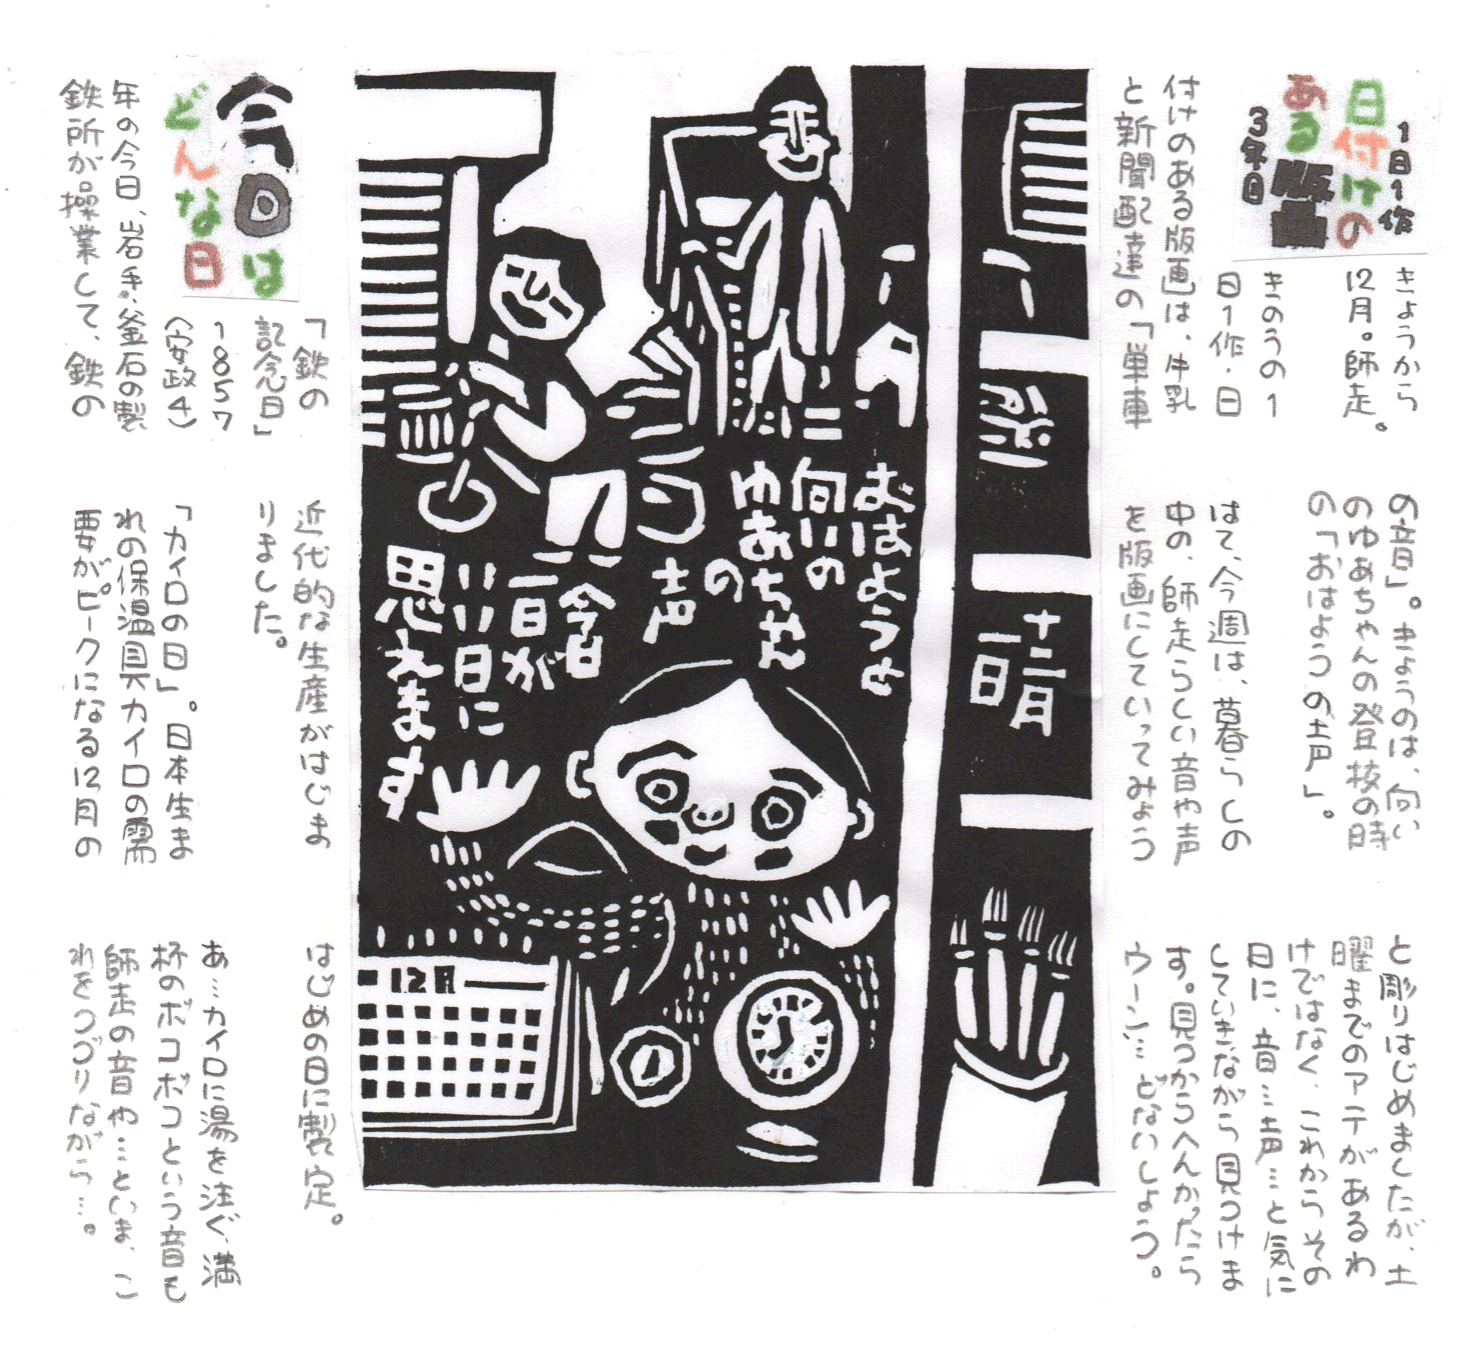 1日1作
日付けの
ある
版画
3年目
きょうから
12月。師走。
きのうの1
日1作・日
付けのある版画は、牛乳
と新聞配達の「単車
の音」。きょうのは、向い
のゆあちゃんの登校の時
の「おはようの声」。
はて、今週は、暮らしの
中の、師走らしい音や声
を版画にしていってみよう
と彫りはじめましたが、土
曜までのアテがあるわ
けではなく、これからその
日に、音…声…と気に
していきながら見つけま
す。見つからへんかったら
ウーン…どないしょう。
十二月
一日
晴
おはようと
向いの
ゆあちゃん
の
声
今日
一日が
いい日に
思えます
12月
今日は
どんな日
「鉄の
記念日」
1857
(安政4)
年の今日、岩手・釜石の製
鉄所が操業して、鉄の
近代的な生産がはじま
りました。
「カイロの日」。日本生ま
れの保温具カイロの需
要がピークになる12月の
はじめの日に製定。
あ…カイロに湯を注ぐ、満
杯のボコボコという音も
師走の音や…といま、こ
れをつづりながら…。